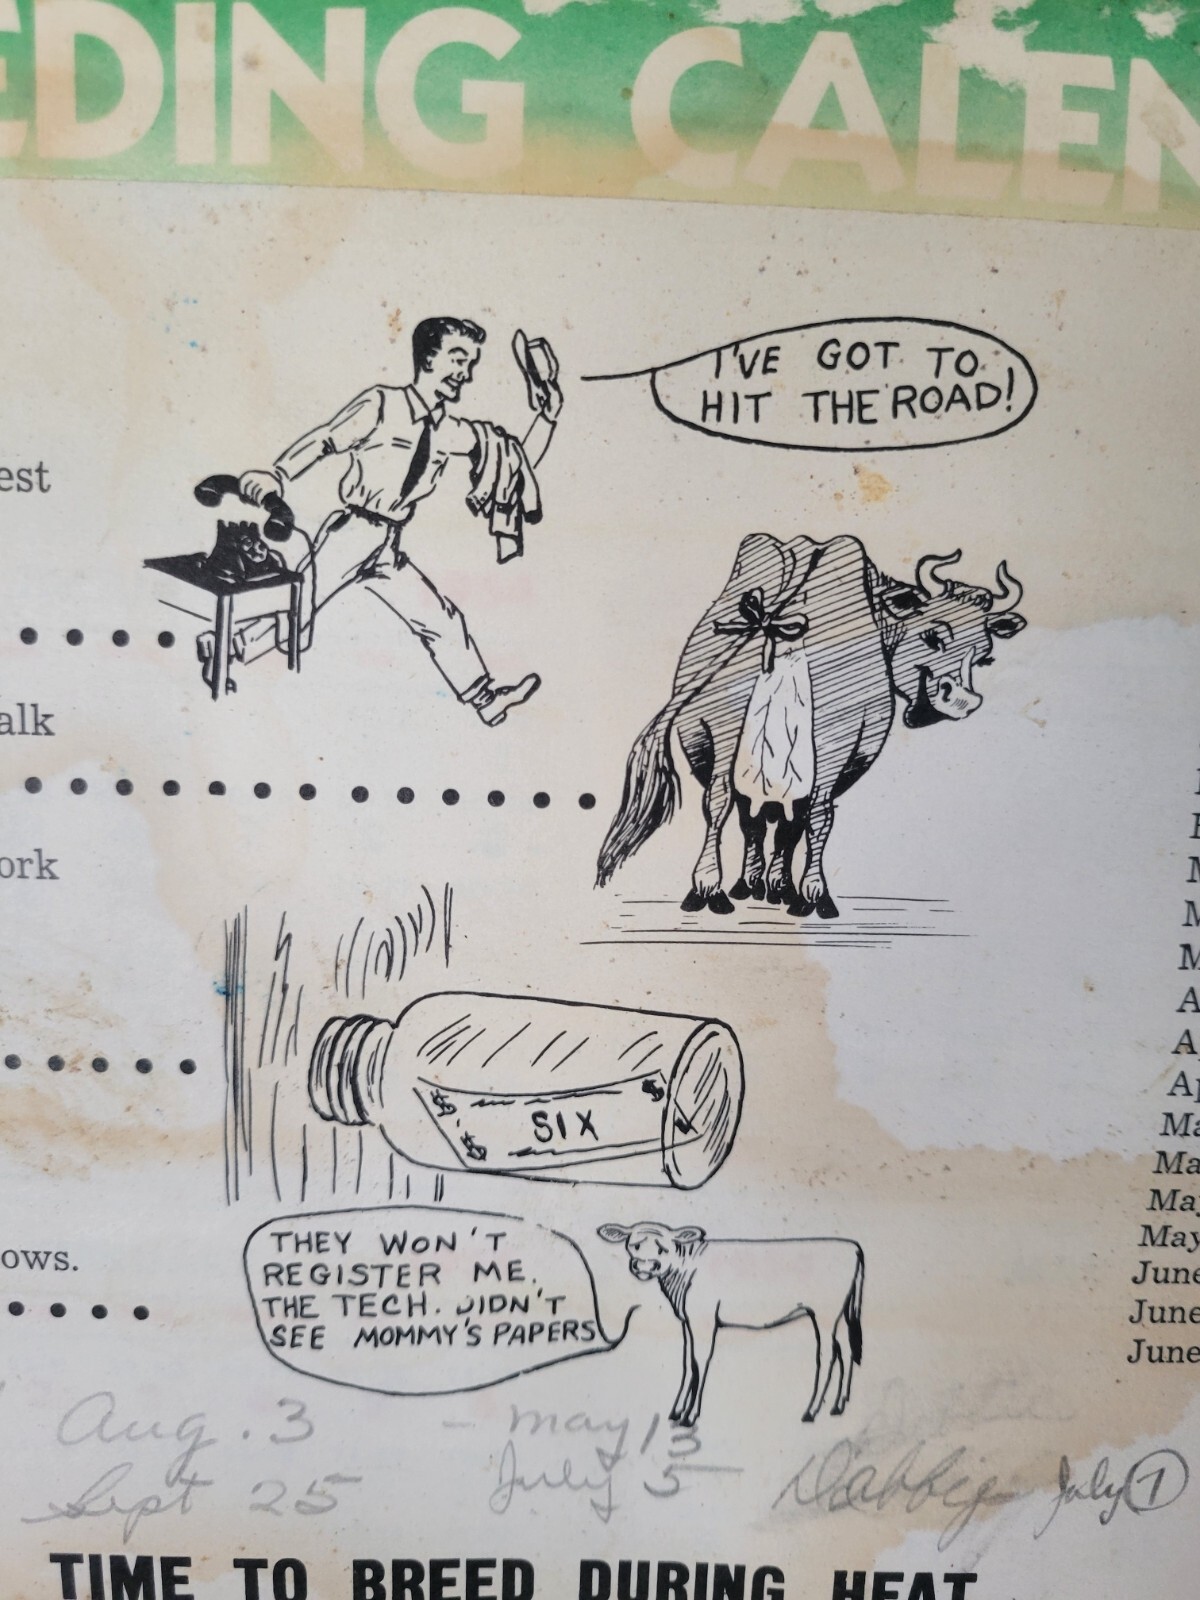 EDING CALEN
I'VE GOT TO
HIT THE ROAD!
est
alk
ork
SIX
$
$
$
THEY WON'T
REGISTER ME.
THE TECH. DIDN'T
SEE MOMMY'S PAPERS
ows.
M
M
M
A
A
Ap
Ma
Ma
May
May
June
June
June
Aug. 3 - May 13
Sept 25 July 5 Debbie July 1
TIME TO BREED DURING HEAT